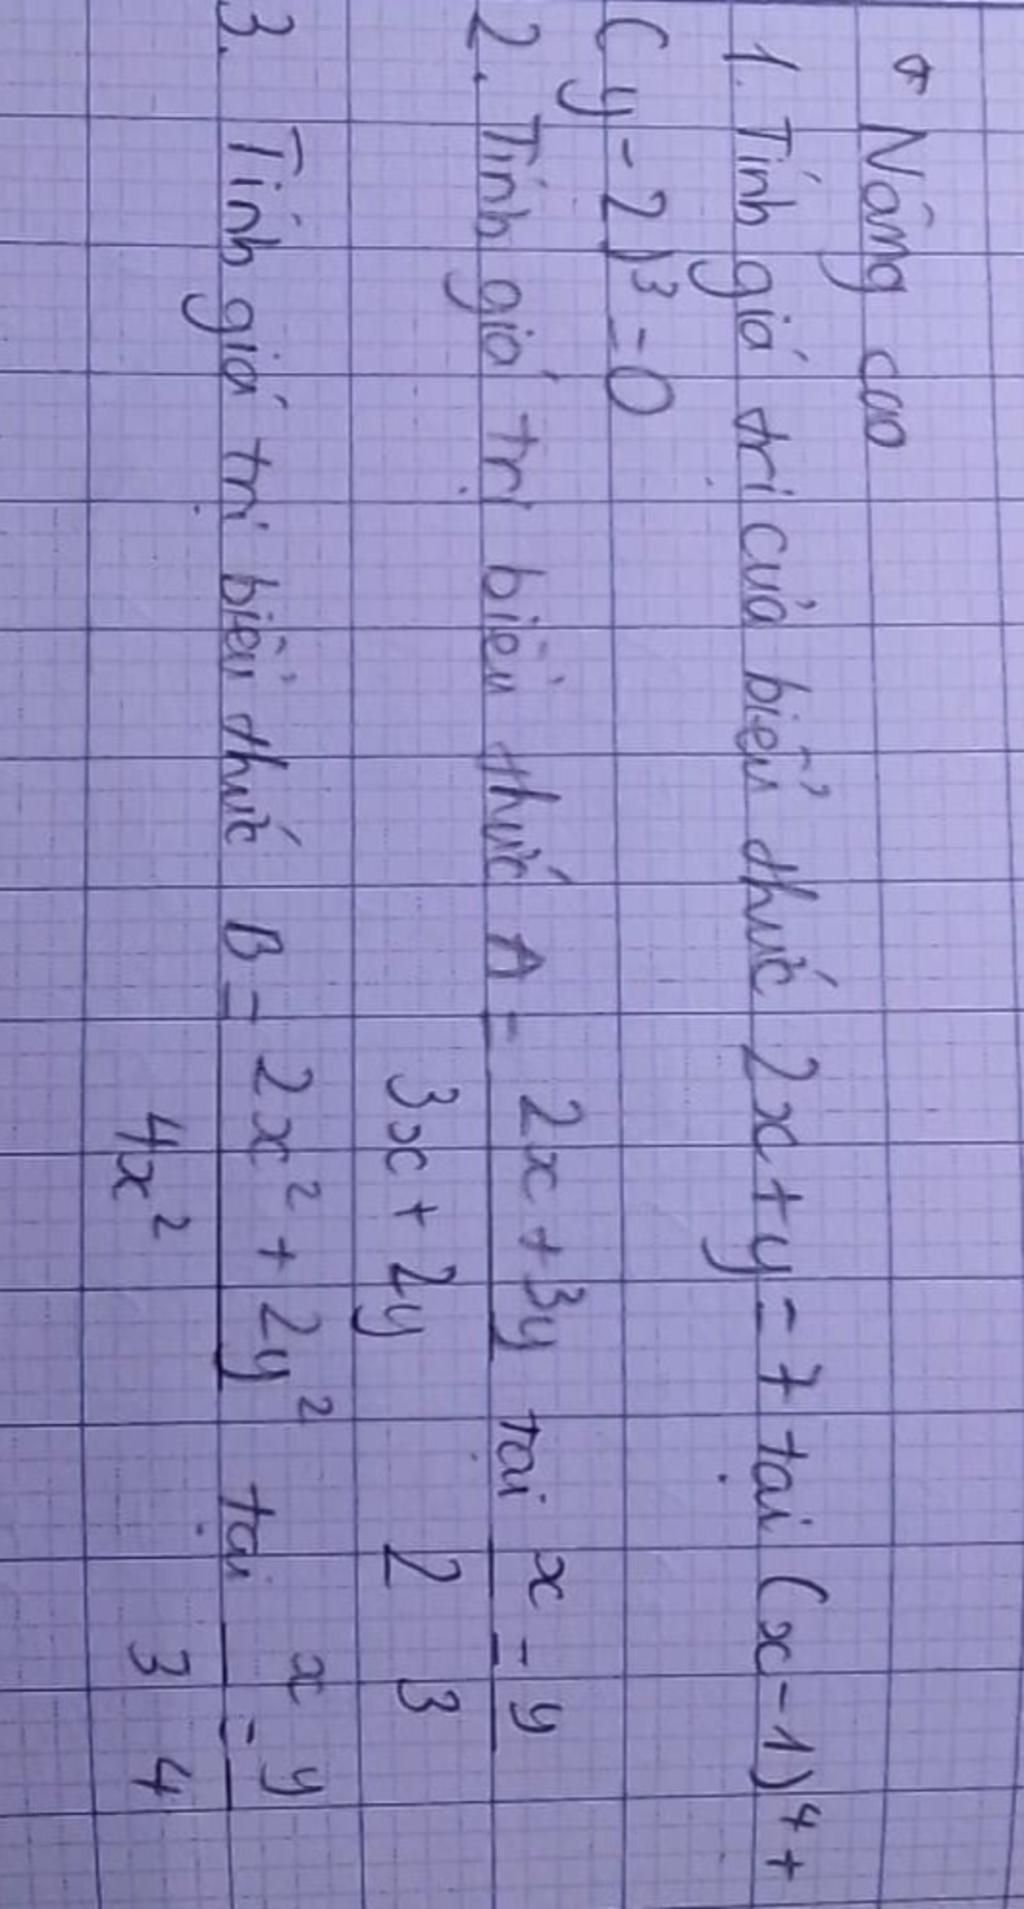 * Nâng cao
1. Tính giá trị của biểu thức 2x+y=7 tại (x-1)⁴+
(y-2)³=0
2. Tính giá trị biểu thức A = 2x+3y tại x = y
3x+2y 2 3
3. Tính giá trị biểu thức B = 2x²+2y² tại x = y
4x² 3 4